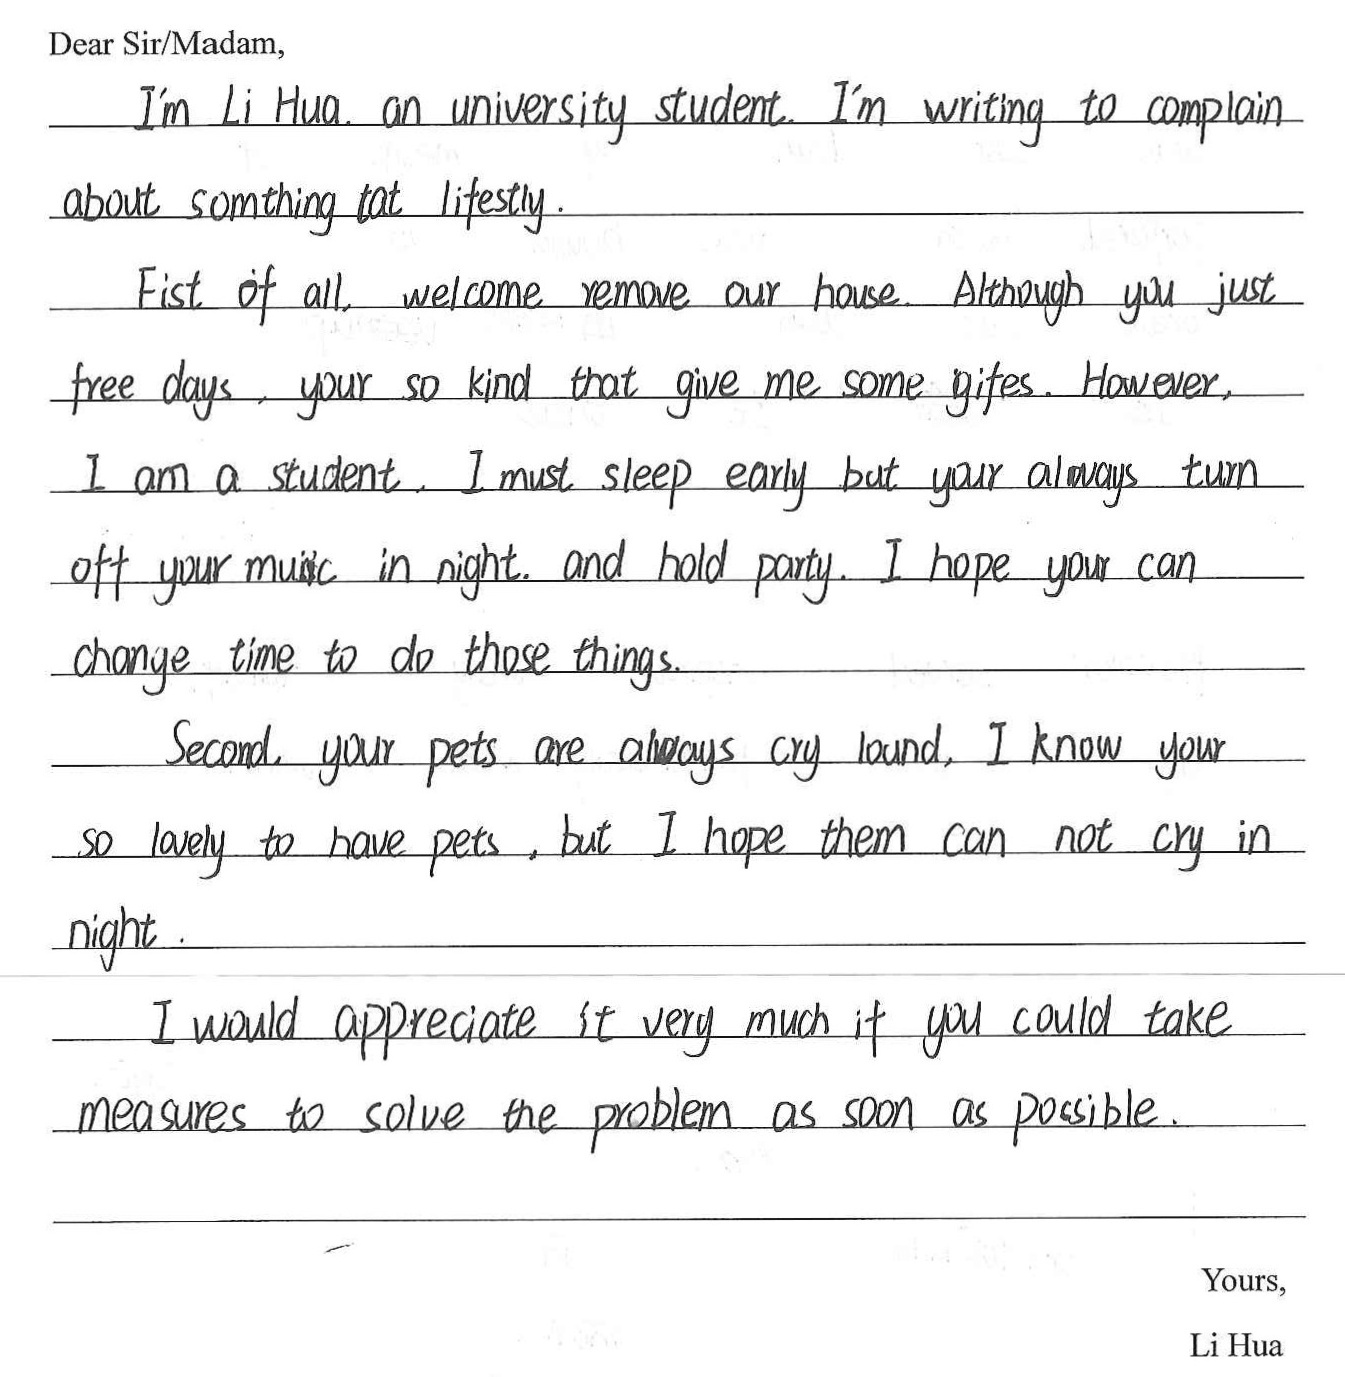 Dear Sir/Madam,
I'm Li Hua. an university student. I'm writing to complain
about somthing tat lifestly.
Fist of all, welcome remove our house. Although you just
free days, your so kind that give me some gifes. However,
I am a student. I must sleep early but your always turn
off your music in night. and hold party. I hope your can
change time to do those things.
Second, your pets are always cry lound, I know your
so lovely to have pets, but I hope them can not cry in
night.
I would appreciate it very much if you could take
measures to solve the problem as soon as possible.
Yours,
Li Hua